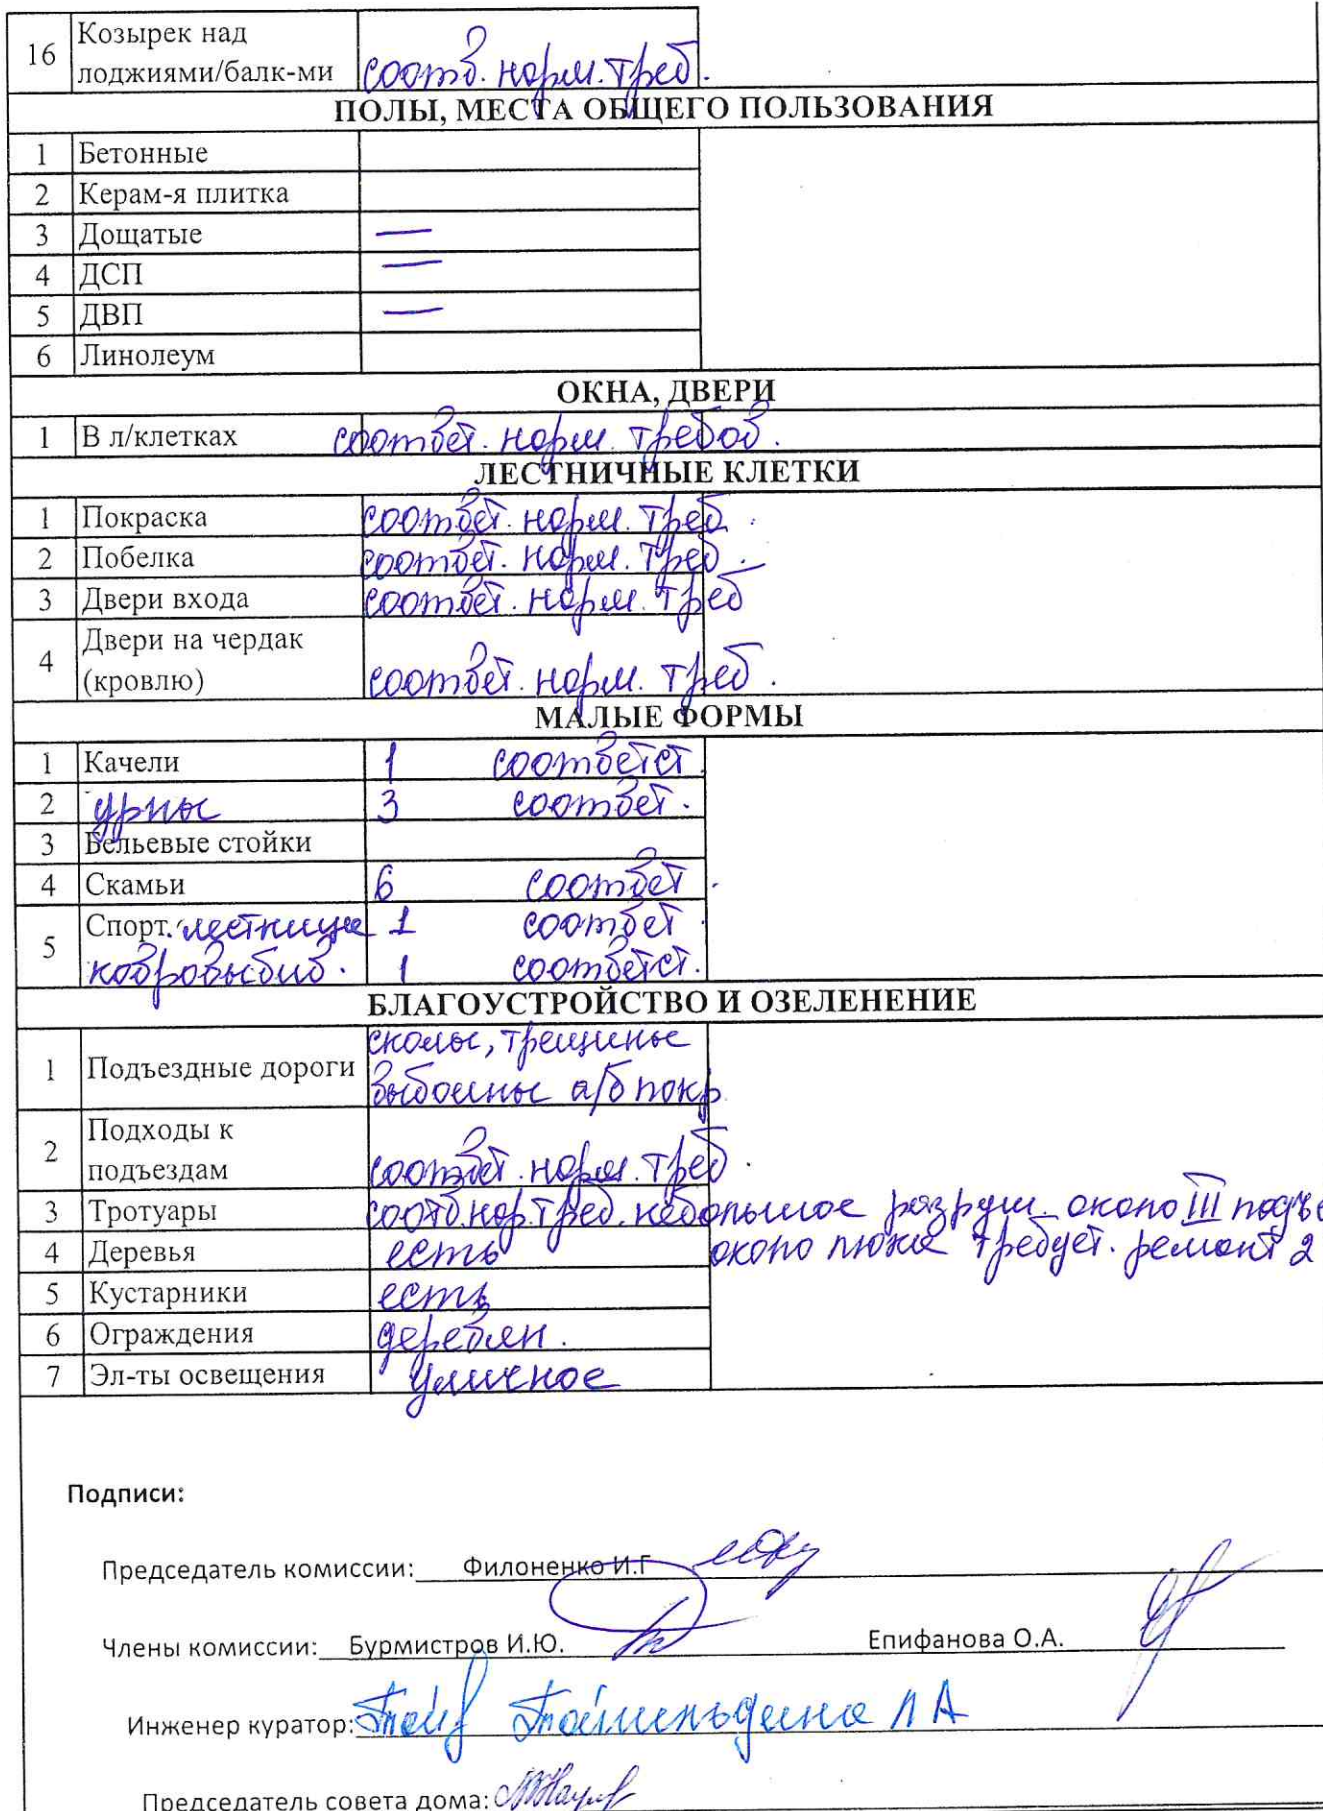 16 Козырек над
лоджиями/балк-ми соотв. норм. треб.
ПОЛЫ, МЕСТА ОБЩЕГО ПОЛЬЗОВАНИЯ
1 Бетонные
2 Керам-я плитка
3 Дощатые —
4 ДСП —
5 ДВП —
6 Линолеум
ОКНА, ДВЕРИ
1 В л/клетках соответ. норм. требов.
ЛЕСТНИЧНЫЕ КЛЕТКИ
1 Покраска соответ. норм. треб.
2 Побелка соответ. норм. треб.
3 Двери входа соответ. норм. треб
4 Двери на чердак
(кровлю) соответ. норм. треб.
МАЛЫЕ ФОРМЫ
1 Качели 1 соответст.
2 урны 3 соответ.
3 Бельевые стойки
4 Скамьи 6 соответ.
5 Спорт. лестница 1 соответ.
ковровыбив. 1 соответст.
БЛАГОУСТРОЙСТВО И ОЗЕЛЕНЕНИЕ
1 Подъездные дороги сколы, трещины
выбоины а/б покр.
2 Подходы к
подъездам соответ. норм. треб.
3 Тротуары соотв. нор. треб. небольшое разруш. около III подъе
4 Деревья есть около люка требует. ремонт 2
5 Кустарники есть
6 Ограждения деревян.
7 Эл-ты освещения уличное
Подписи:
Председатель комиссии: Филоненко И.Г
Члены комиссии: Бурмистров И.Ю. Епифанова О.А.
Инженер куратор: Л А
Председатель совета дома: